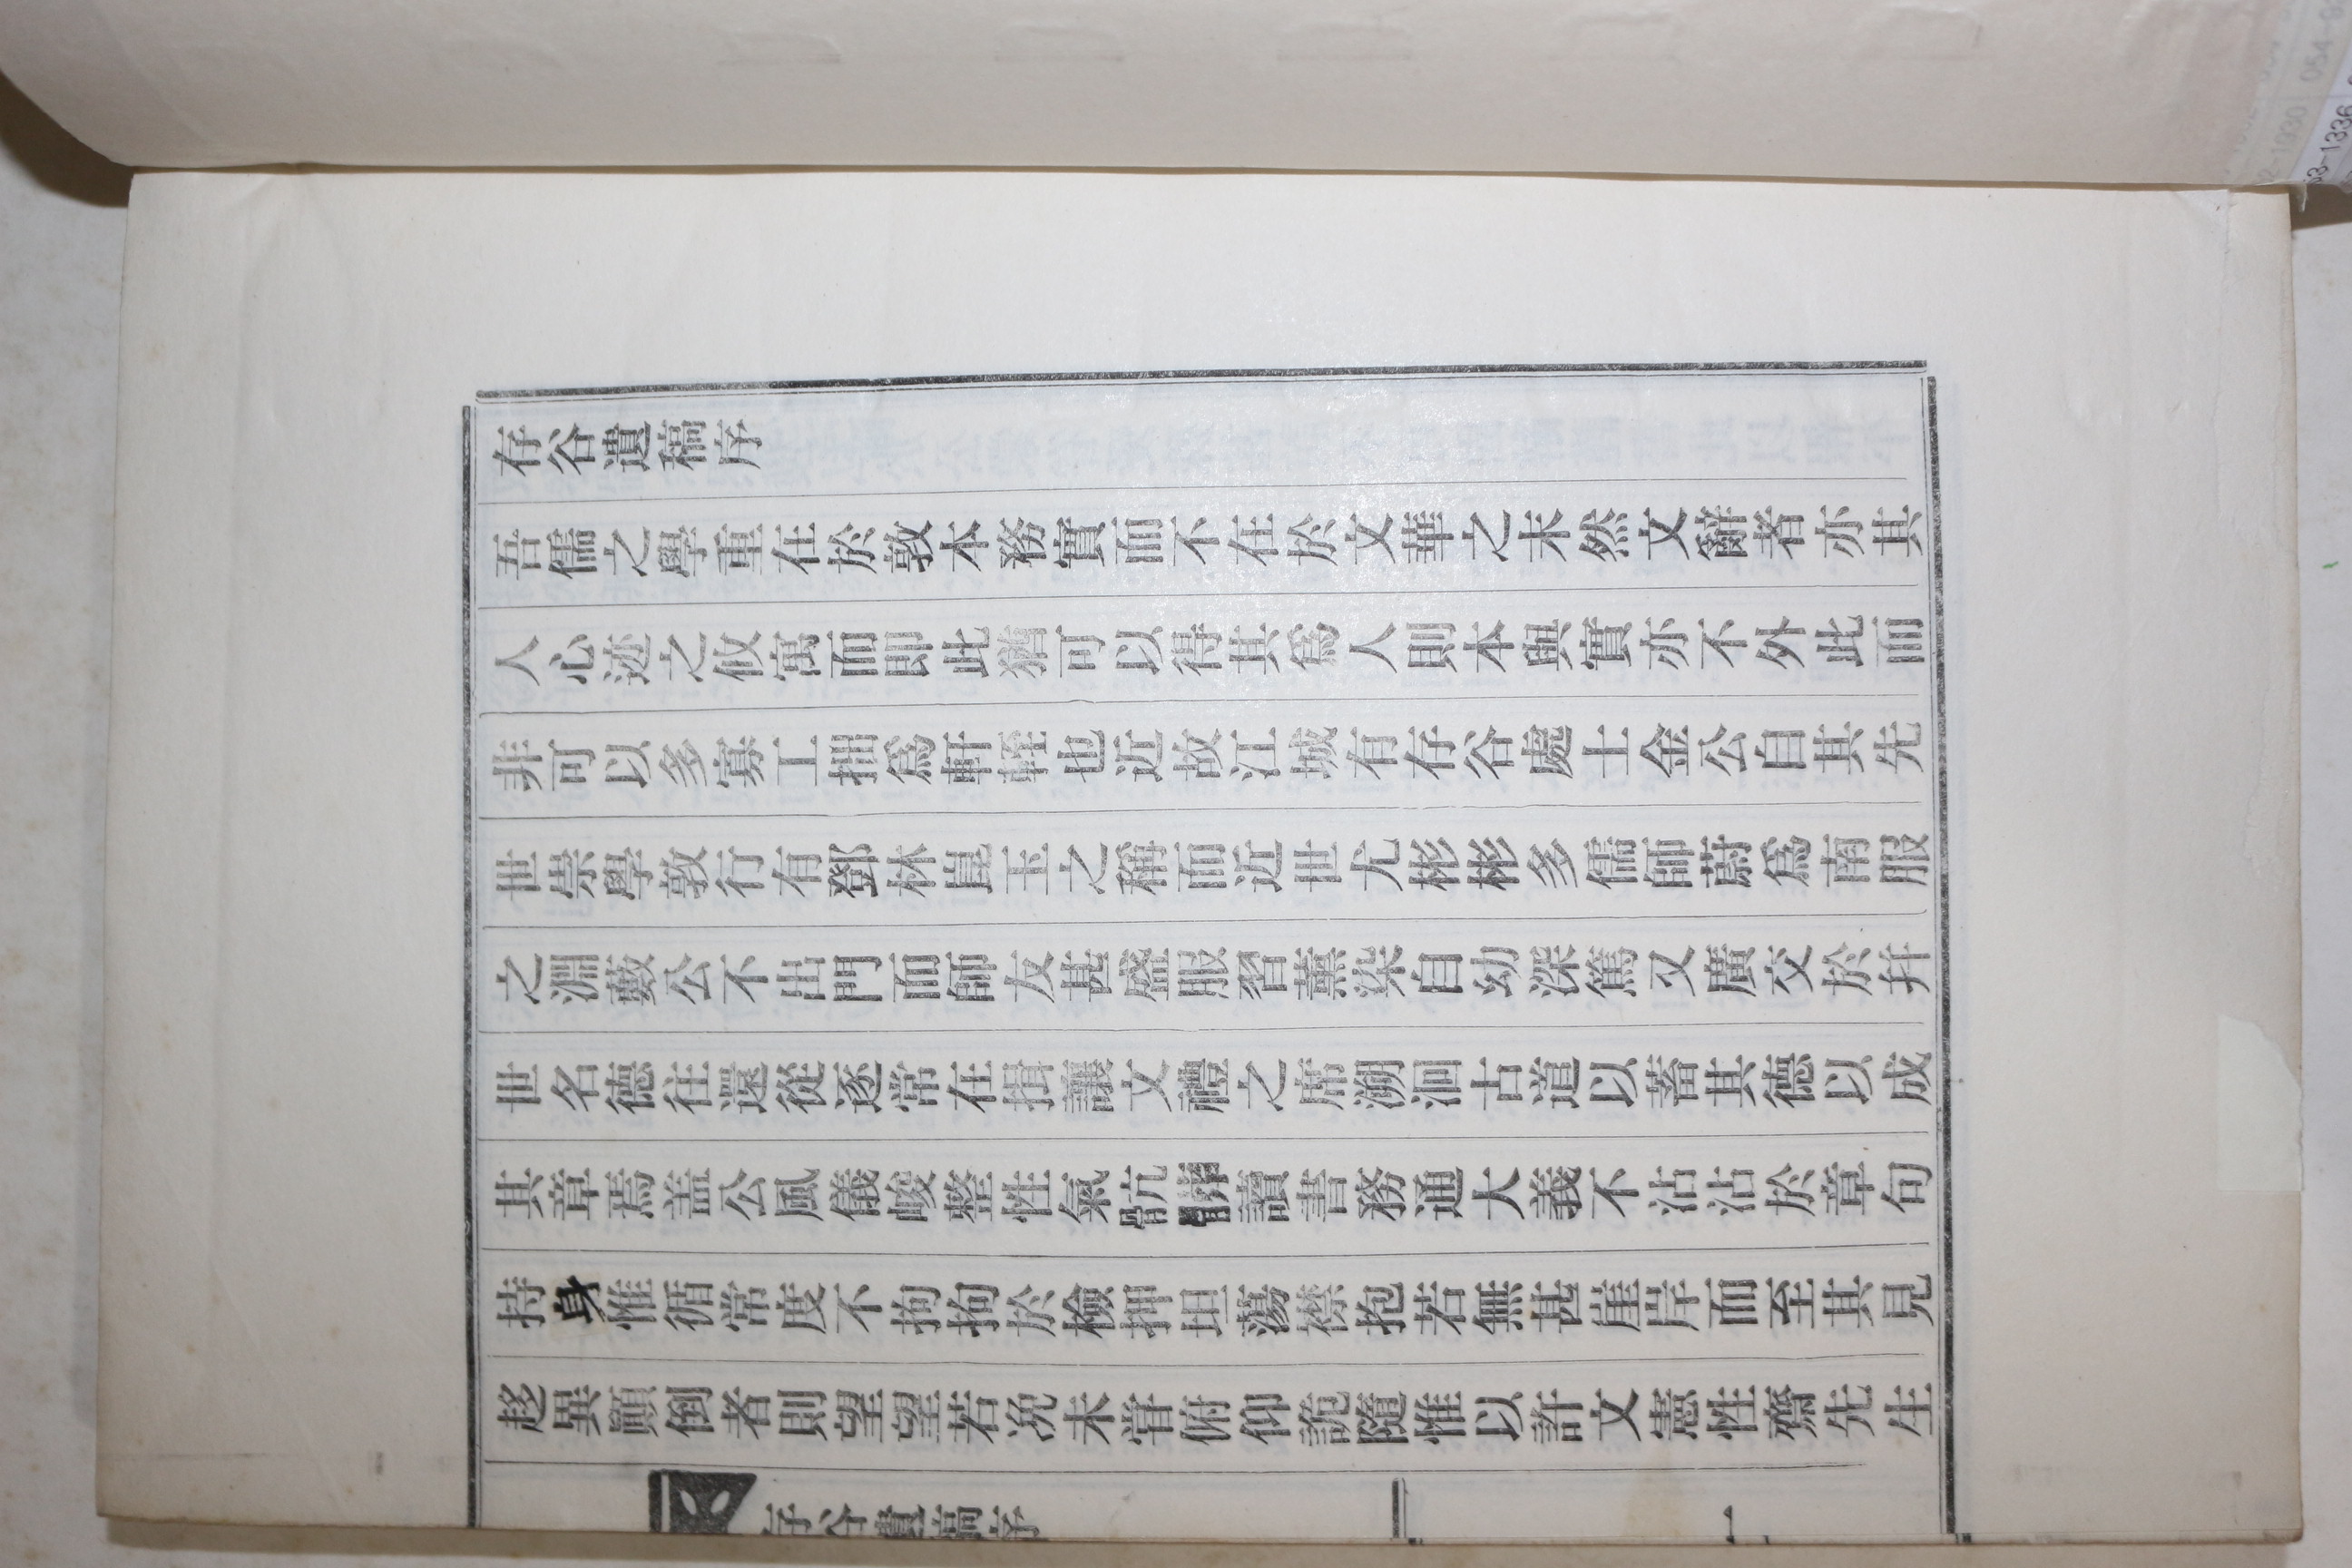 存谷遺稿序
吾儒之學重在於敦本務實而不在於文華之末然文辭者亦其
人心迹之攸寓而即此猶可以得其爲人則本與實亦不外此而
非可以多寡工拙爲軒輊也近故江城有存谷處士金公自其先
世崇學敦行有鄧林崑玉之稱而近世尤彬彬多儒師蔚爲南服
之淵藪公不出門而師友甚盛服習薰染自幼深篤又廣交於幷
世名德往還從逐常在揖讓文禮之席溯洄古道以蓄其德以成
其章焉盖公風儀峻整性氣骯髒讀書務通大義不沾沾於章句
持身惟循常度不拘拘於檢押坦蕩襟抱若無甚崖岸而至其見
趍異顚倒者則望望若浼未甞俯仰詭隨惟以許文憲性齋先生
存谷遺稿序
一
53-1336